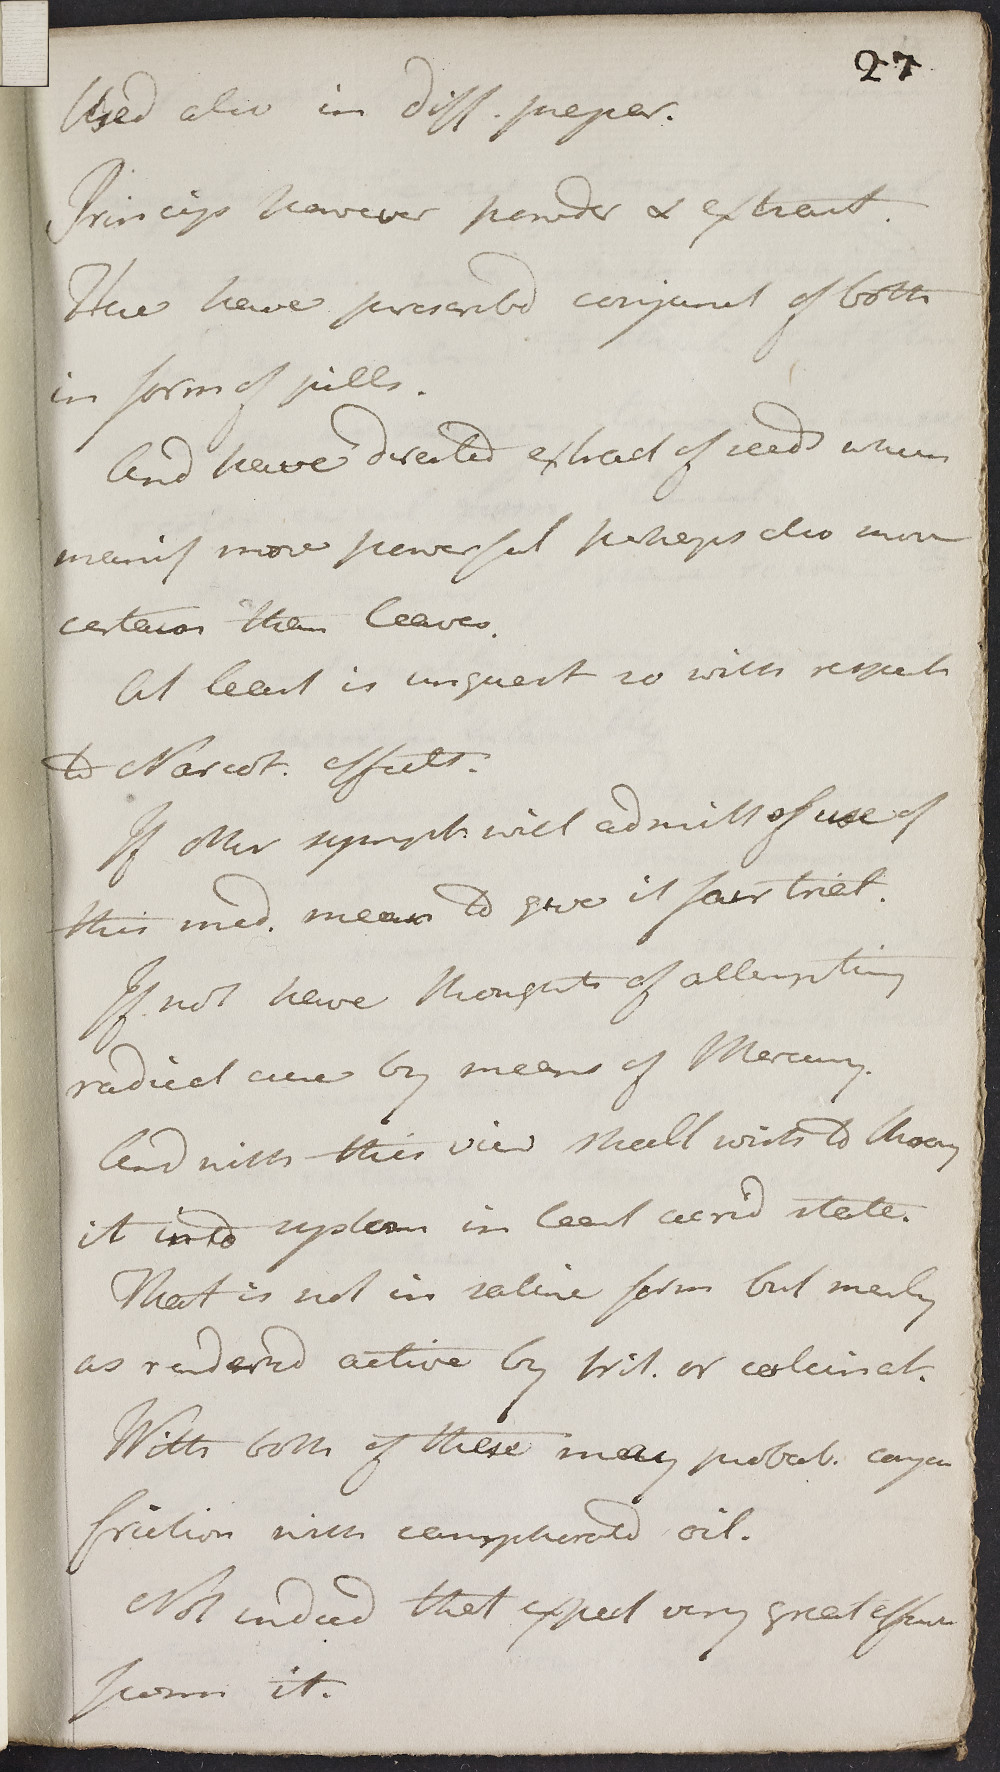 27
Used also in diff. prepar.
Princip however powder & extract.
Here have prescribd conjunct of both
in form of pills.
And have directed extract of seeds when
manif more powerful perhaps also more
certain than leaves.
At least is unquest so with respect
to Narcot. effects.
If other sympt. will admitt of use of
this med. mean to give it fair trial.
If not have thoughts of attempting
radical cure by means of Mercury.
And with this view shall wish to throw
it into system in least acrid state.
That is not in saline form but merely
as renderd active by trit. or calcinat.
With both of these may probab. conjoin
friction with camphorated oil.
Not indeed that expect very great effects
from it.